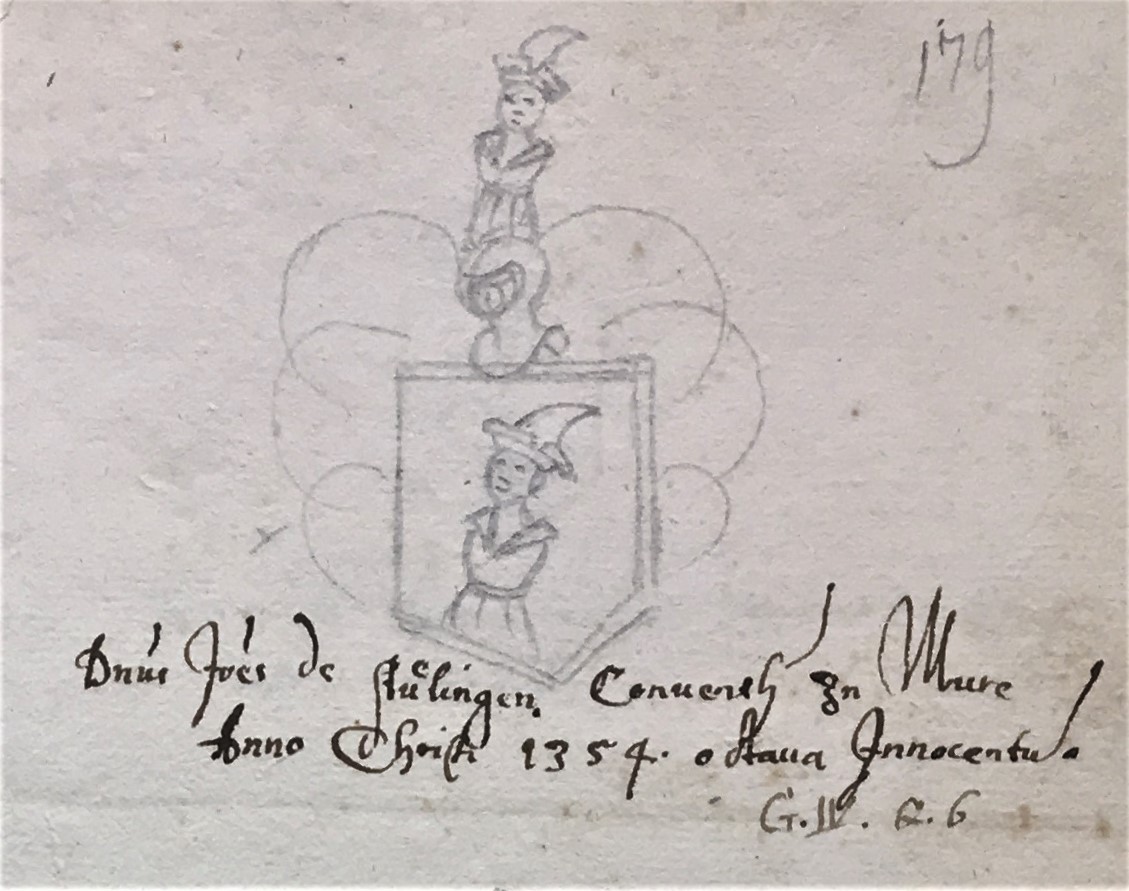 179
Dnûs Joês de Stůlingen. Conuentl Zn Mure
Anno Christi 1354. octaua Innocentu.
G. IV. 6